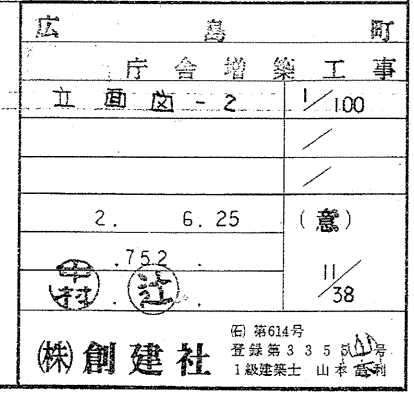 広島町
庁舎増築工事
立面図-2 1/100
/
/
2. 6.25 (意)
.752.
中村 . 辻 . 11/38
(株)創建社
(石)第614号
登録第33550号
1級建築士 山本 利